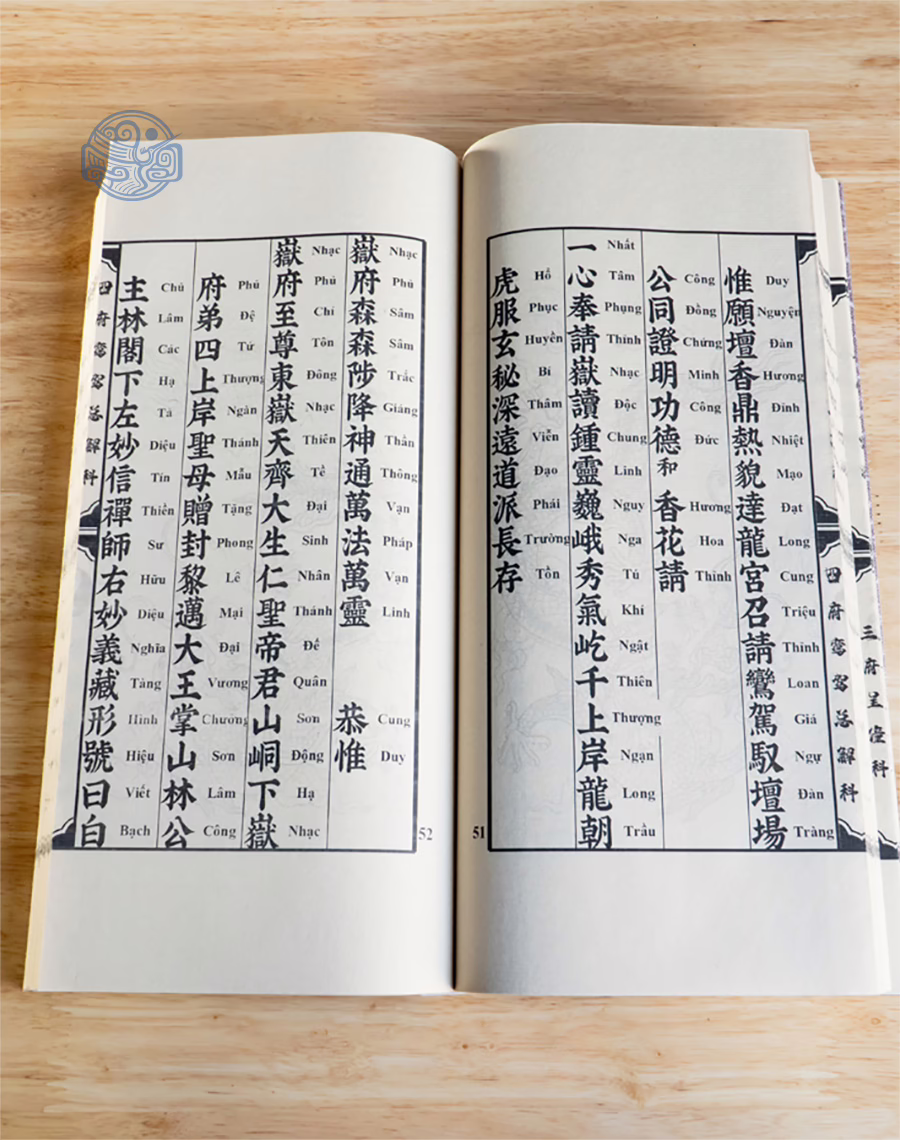 三府呈僮科
四府鸞駕落解科
惟願壇香鼎熱貌達龍宮召請鸞駕馭壇場
Duy Nguyện Đàn Hương Đỉnh Nhiệt Mạo Đạt Long Cung Triệu Thỉnh Loan Giá Ngự Đàn Tràng
公同證明功德和香花請
Công Đồng Chứng Minh Công Đức Hương Hoa Thỉnh
一心奉請嶽讀鍾靈巍峨秀氣屹千上岸龍朝
Nhất Tâm Phụng Thỉnh Nhạc Độc Chung Linh Nguy Nga Tú Khí Ngật Thiên Thượng Ngạn Long Trầu
虎服玄秘深遠道派長存
Hổ Phục Huyền Bí Thâm Viễn Đạo Phái Trường Tồn
51
嶽府森森陟降神通萬法萬靈 恭惟
Nhạc Phủ Sâm Sâm Trắc Giáng Thần Thông Vạn Pháp Vạn Linh Cung Duy
嶽府至尊東嶽天齊大生仁聖帝君山峒下嶽
Nhạc Phủ Chí Tôn Đông Nhạc Thiên Tề Đại Sinh Nhân Thánh Đế Quân Sơn Động Hạ Nhạc
府弟四上岸聖母贈封黎邁大王掌山林公
Phủ Đệ Tứ Thượng Ngàn Thánh Mẫu Tặng Phong Lê Mại Đại Vương Chưởng Sơn Lâm Công
主林閣下左妙信禪師右妙義藏形號曰白
Chủ Lâm Các Hạ Tả Diệu Tín Thiền Sư Hữu Diệu Nghĩa Tàng Hình Hiệu Viết Bạch
四府鸞駕落解科
52